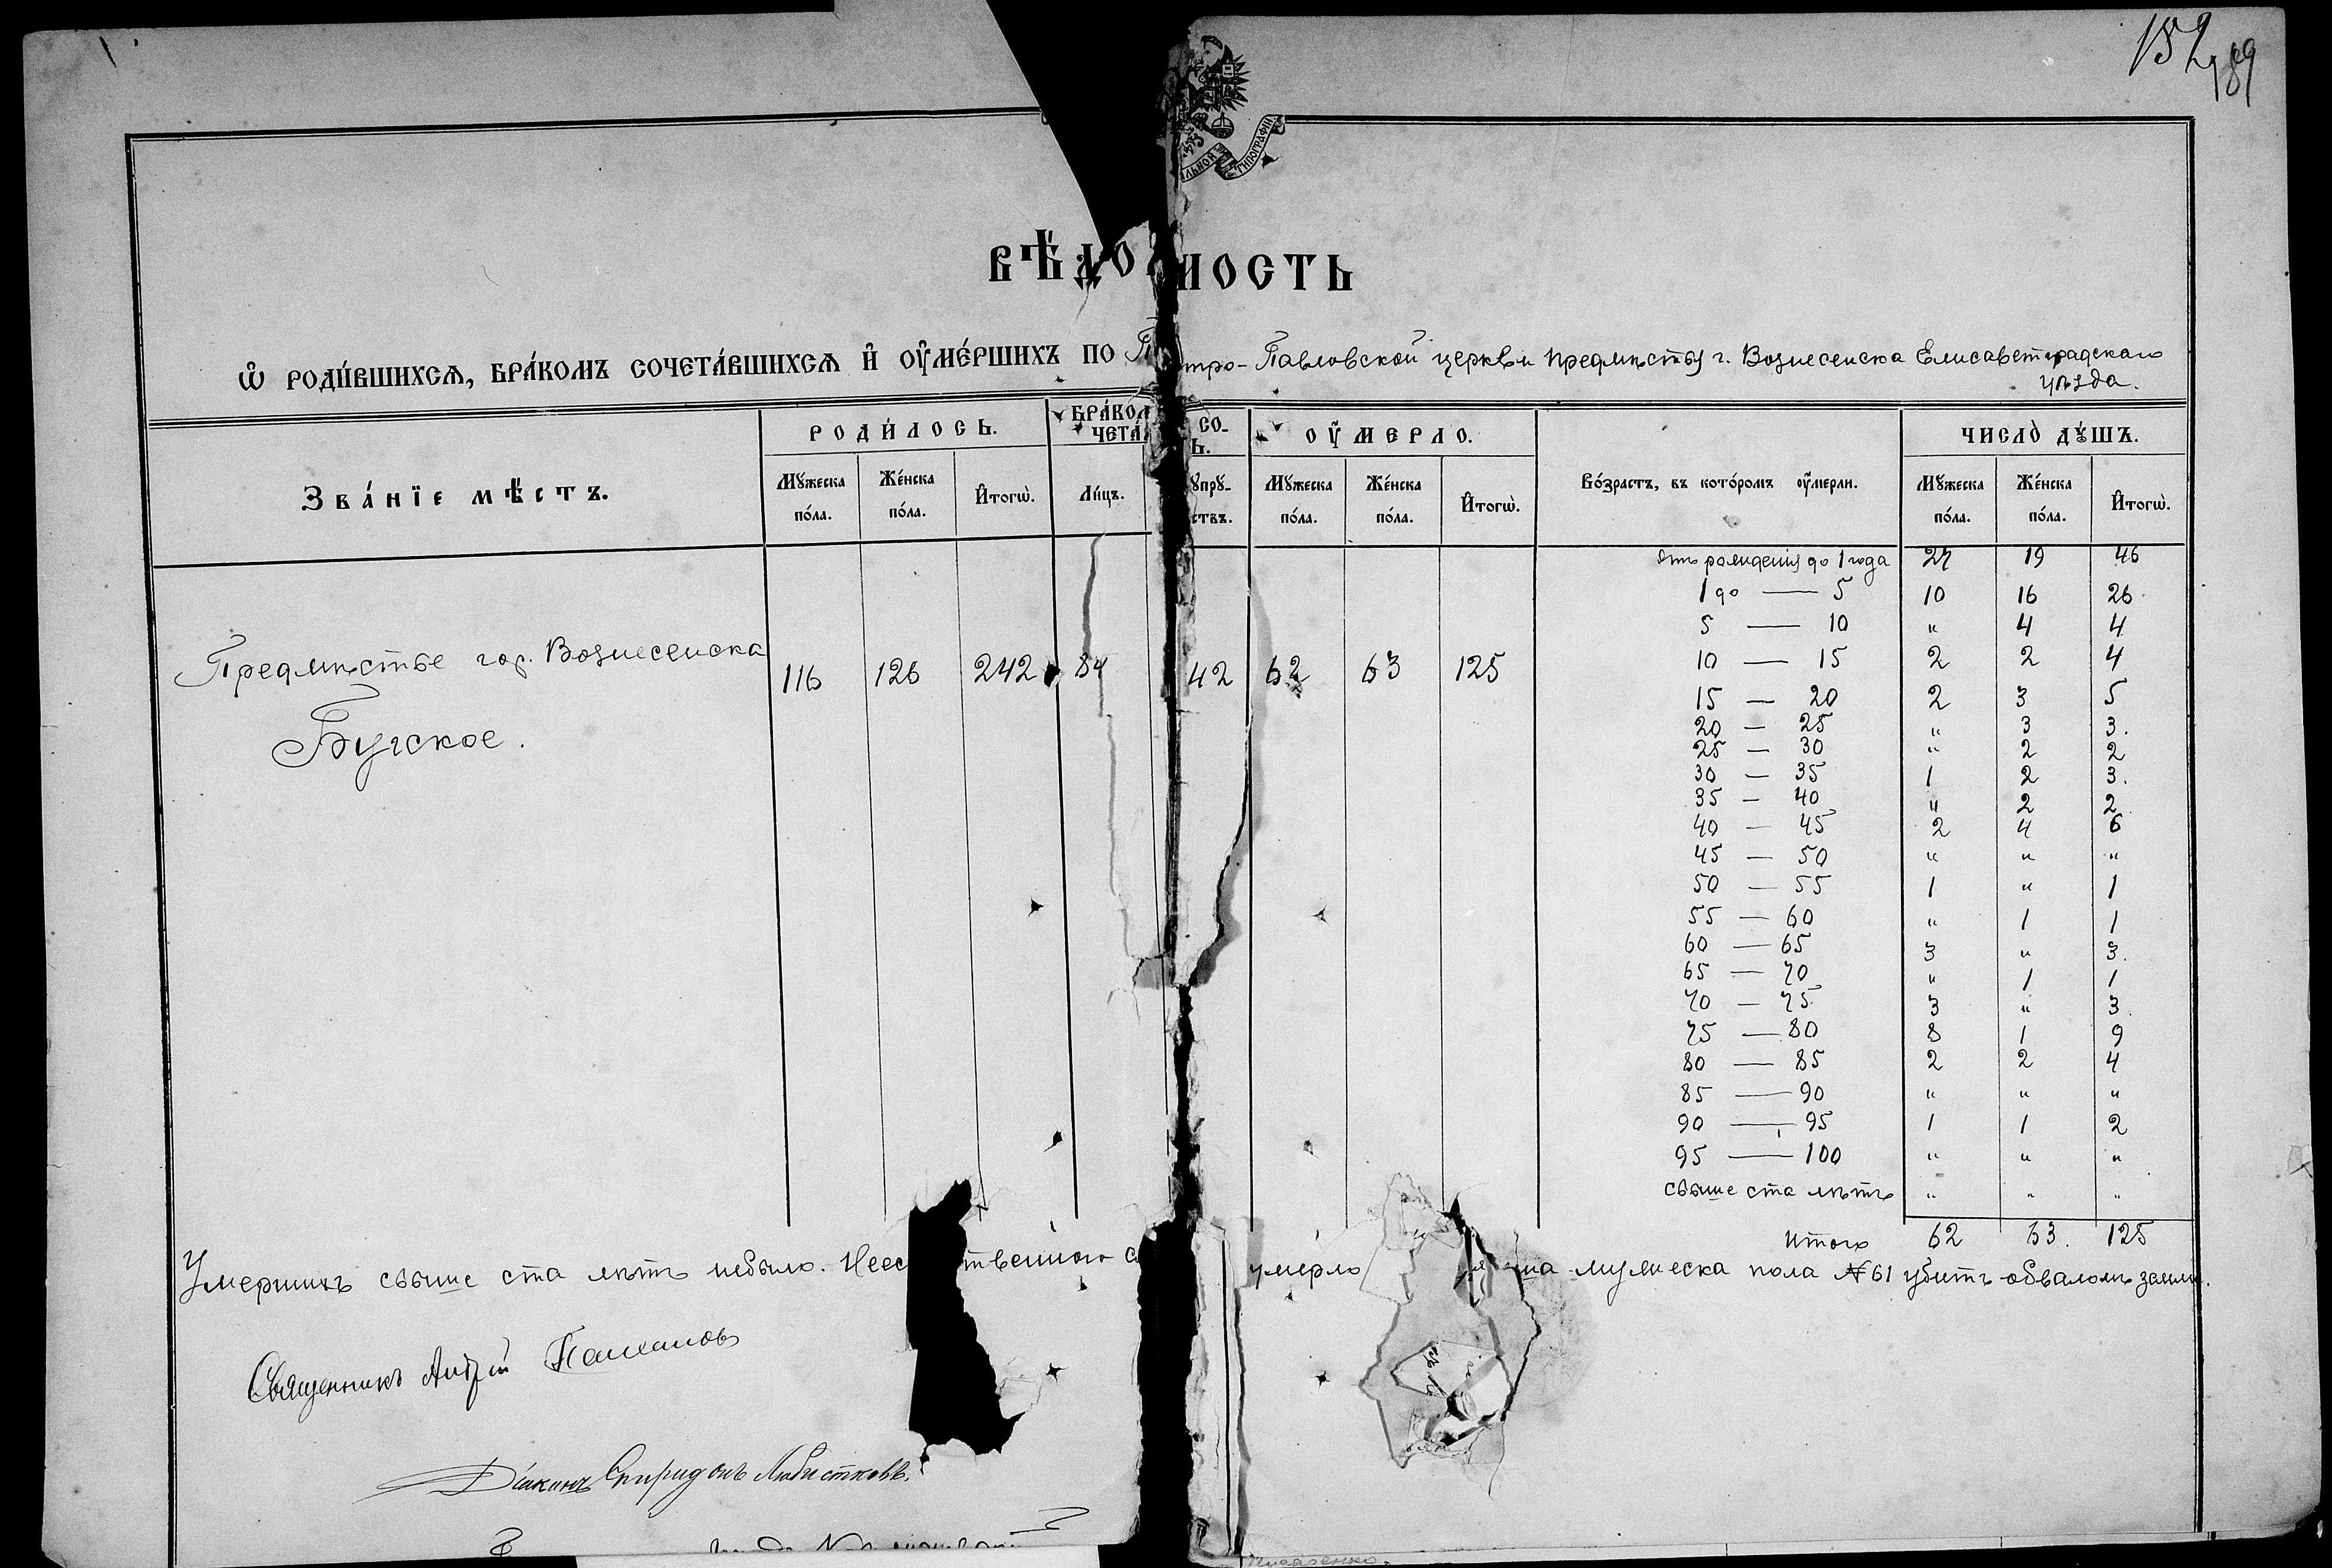 152
189
ЛЬНОЙ ТИПОГРАФИИ
ВѢДО МОСТЬ
Ѡ РОДИ́ВШИХСѦ, БРА́КОМЪ СОЧЕТА́ВШИХСѦ И҆ ОУ҆МЕ́РШИХЪ ПО Пе тро-Павловской церкви предмѣстья г. Вознесенска Елисаветградскаго
уѣзда.
Зва́нїе мѣ́стъ.
РОДИ́ЛОСЬ.
Мꙋ́жеска по́ла.
Же́нска по́ла.
И҆тогѡ̀.
БРА́КОМ СО-
ЧЕТА Ь.
Ли́цъ.
упрꙋ-
ствъ.
ОУ҆́МЕРЛО.
Мꙋ́жеска по́ла.
Же́нска по́ла.
И҆тогѡ̀.
Во́зрастъ, въ кото́ромъ оу҆́мерли.
ЧИСЛО̀ ДꙊ́ШЪ.
Мꙋ́жеска по́ла.
Же́нска по́ла.
И҆тогѡ̀.
отъ рожденія до 1 года 27 19 46
1 до — 5 10 16 26
5 — 10 " 4 4
10 — 15 2 2 4
Предмѣстье гор. Вознесенска 116 126 242 84 42 62 63 125
Бугское.
15 — 20 2 3 5
20 — 25 " 3 3.
25 — 30 " 2 2
30 — 35 1 2 3.
35 — 40 " 2 2
40 — 45 2 4 6
45 — 50 " " "
50 — 55 1 " 1
55 — 60 " 1 1
60 — 65 3 " 3.
65 — 70 " 1 1
70 — 75 3 " 3.
75 — 80 8 1 9
80 — 85 2 2 4
85 — 90 " " "
90 — 95 1 1 2
95 — 100 " " "
свыше ста лѣтъ " " "
Итого 62 63. 125
Умершихъ свыше ста лѣтъ небыло. Неес твенного с умерло мужеска пола №61 убитъ обваломъ земли.
Священникъ Андрей
Діаконъ Спиридонъ Любистковъ.